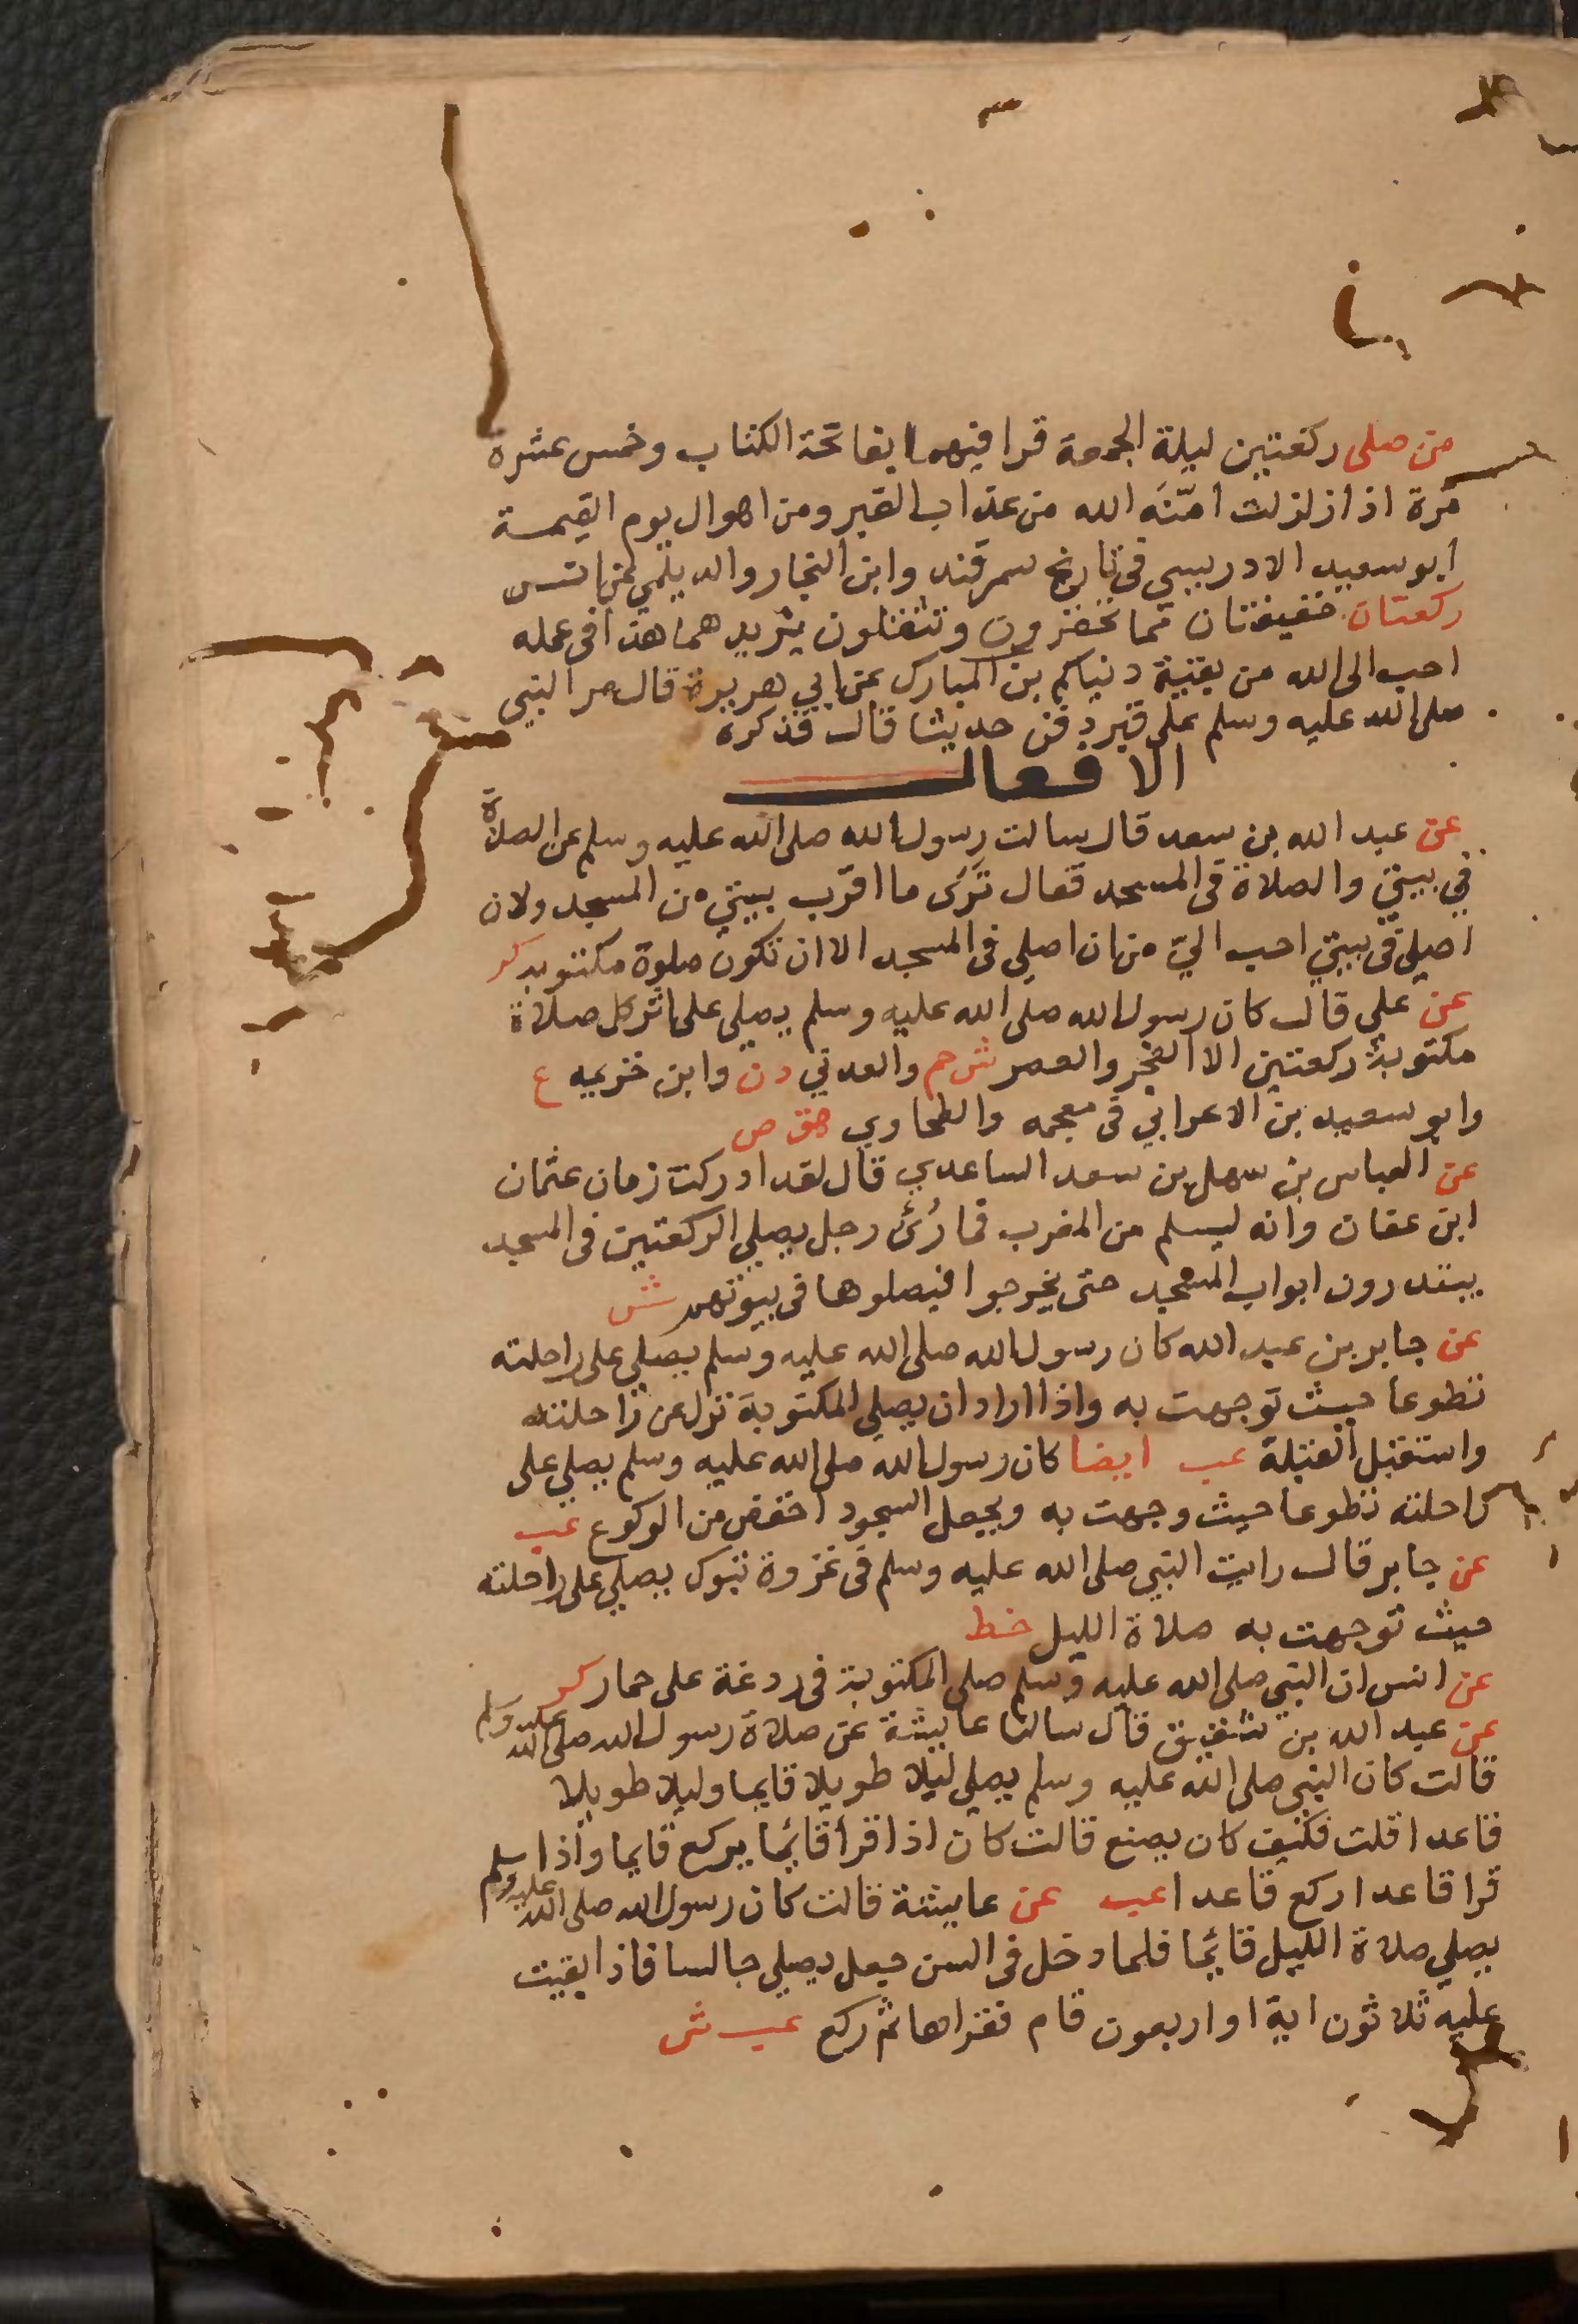 من صلى ركعتين ليلة الجمعة قرا فيهما بفاتحة الكتاب وخمس عشرة
مرة اذا زلزلت امّنَه الله من عذاب القبر ومن اهوال يوم القيمة
ابو سعيد الادريسي في تاريخ سمرقند وابن النجار والديلمي عن انس
ركعتان خفيفتان مما تحقرون وتنفلون يزيدهما هذا في عمله
احب الى الله من بقية دنياكم بن المبارك عن ابي هريرة قال مر النبي
صلى الله عليه وسلم على قبر دفن حديثا قال فذكره
الافعال
عن عبد الله بن سعد قال سالت رسول الله صلى الله عليه وسلم عن الصلاة
في بيتي والصلاة في المسجد فقال ترى ما اقرب بيتي من المسجد ولان
اصلي في بيتي احب اليّ من ان اصلي في المسجد الا ان تكون صلوة مكتوبة كر
عن علي قال كان رسول الله صلى الله عليه وسلم يصلي على اثر كل صلاة
مكتوبة ركعتين الا الفجر والعصر ش حم والعدني د ن وابن خزيمه ع
وابو سعيد بن الاعرابي في معجمه والطحاوي هق ص
عن العباس بن سهل بن سعد الساعدي قال لقد ادركت زمان عثمان
ابن عفان وانه ليسلم من المغرب فما رُئ رجل يصلي الركعتين في المسجد
يبتدرون ابواب المسجد حتى يخرجوا فيصلوها في بيوتهم ش
عن جابر بن عبد الله كان رسول الله صلى الله عليه وسلم يصلي على راحلته
تطوعا حيث توجهت به واذا اراد ان يصلي المكتوبة نزل عن راحلته
واستقبل القبلة عب ايضا كان رسول الله صلى الله عليه وسلم يصلي على
راحلته تطوعا حيث وجهت به ويجعل السجود اخفض من الركوع عب
عن جابر قال رايت النبي صلى الله عليه وسلم في غزوة تبوك يصلي على راحلته
حيث توجهت به صلاة الليل خط
عن انس ان النبي صلى الله عليه وسلم صلى المكتوبة في ردغة على حمار كر
عن عبد الله بن شقيق قال سالنا عايشة عن صلاة رسول الله صلى الله عليه وسلم
قالت كان النبي صلى الله عليه وسلم يصلي ليلا طويلا قايما وليلا طويلا
قاعدا قلت فكيف كان يصنع قالت كان اذا قرا قائما يركع قايما واذا
قرا قاعدا ركع قاعدا عب عن عايشة قالت كان رسول الله صلى الله عليه وسلم
يصلي صلاة الليل قائما فلما دخل في السن جعل يصلي جالسا فاذا بقيت
عليه ثلاثون اية او اربعون قام فقراها ثم ركع عب ش